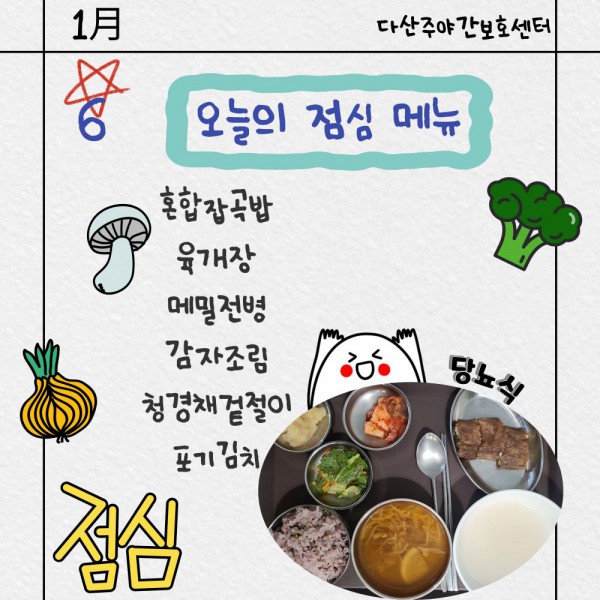 1月
다산주야간보호센터
6
오늘의 점심 메뉴
혼합잡곡밥
육개장
메밀전병
감자조림
청경채겉절이
포기김치
당뇨식
점심